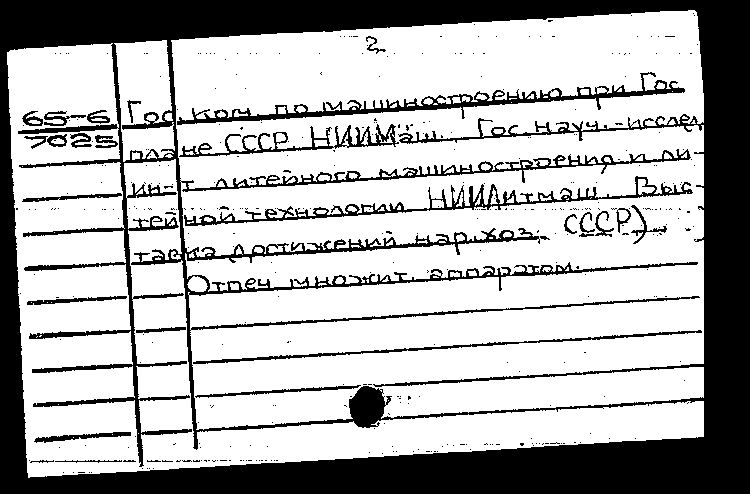 2
65-6 Гос. ком. по машиностроению при Гос
7025 плане СССР. НИИМаш. Гос. науч.-исслед
ин-т литейного машиностроения и ли-
тейной технологии НИИЛитмаш. Выс-
тавка достижений нар. хоз. СССР).
Отпеч множит. аппаратом.